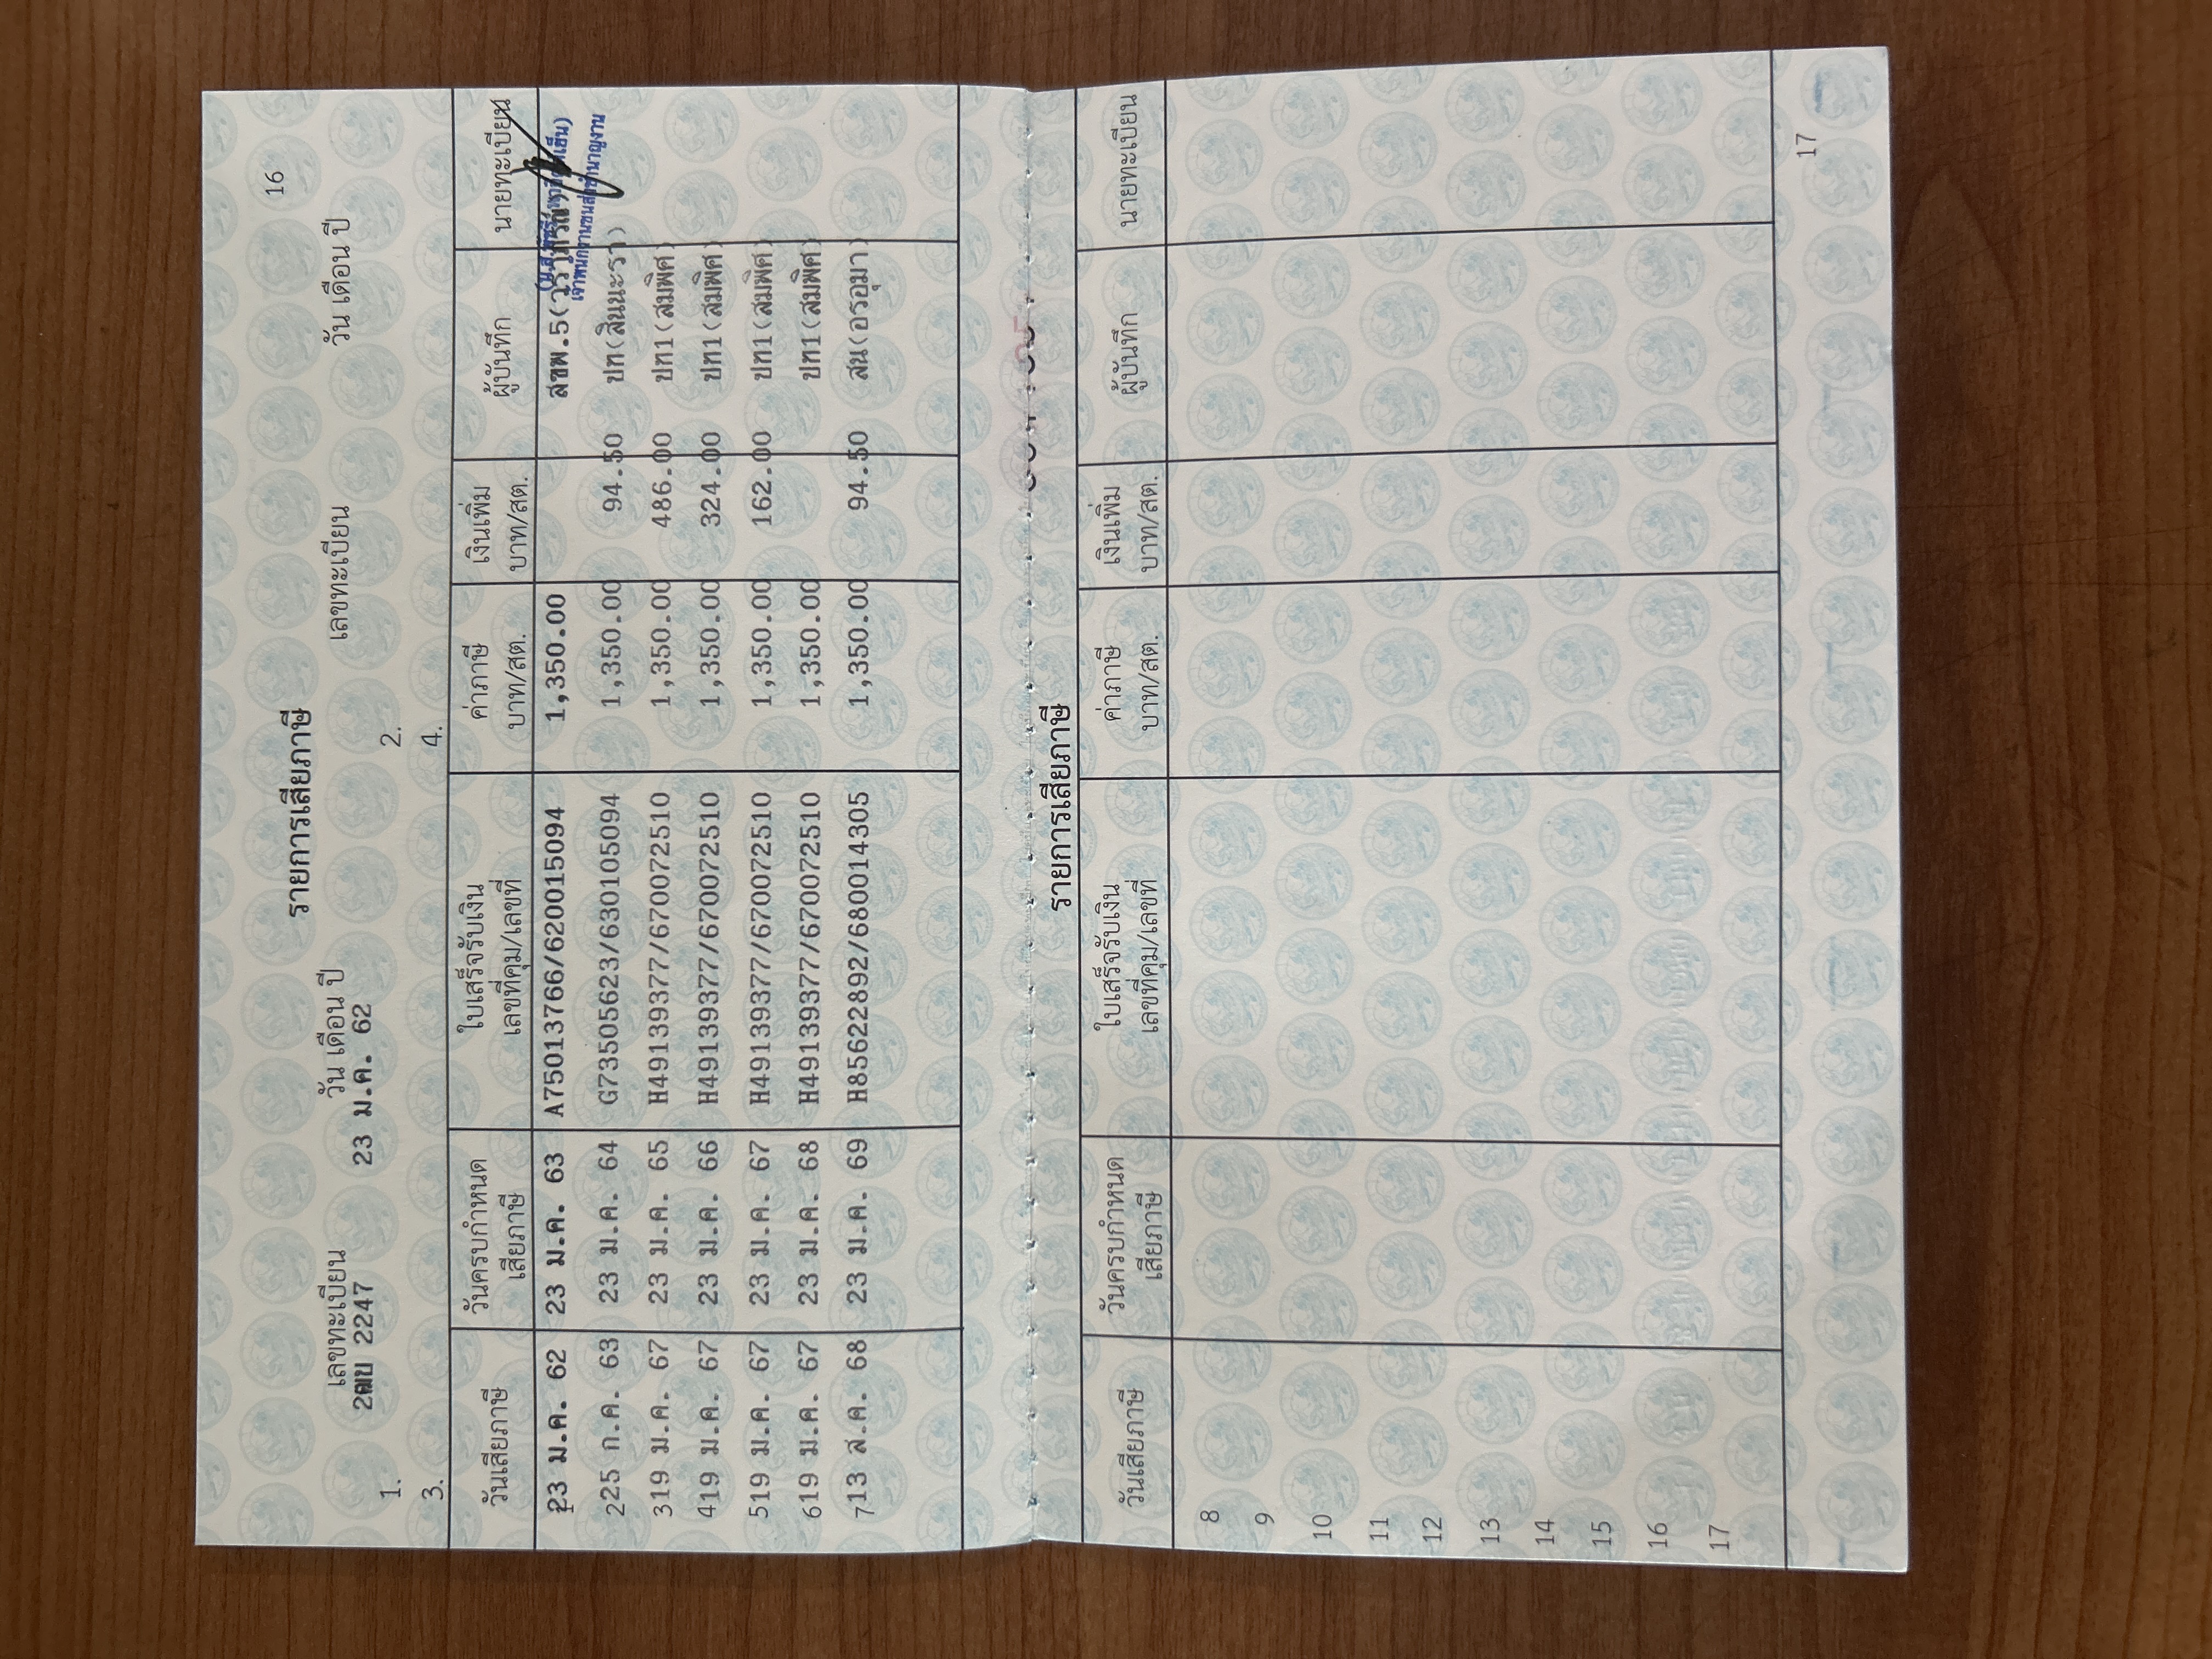 16
รายการเสียภาษี
เลขทะเบียน วัน เดือน ปี เลขทะเบียน วัน เดือน ปี
1. 2ฒข 2247 23 ม.ค. 62 2.
3. 4.
วันเสียภาษี วันครบกำหนดเสียภาษี ใบเสร็จรับเงิน เลขที่คุม/เลขที่ ค่าภาษี บาท/สต. เงินเพิ่ม บาท/สต. ผู้บันทึก นายทะเบียน
23 ม.ค. 62 23 ม.ค. 63 A75013766/620015094 1,350.00 สขพ.5(
เจ้าพนักงานขนส่งชำนาญงาน
225 ก.ค. 63 23 ม.ค. 64 G73505623/630105094 1,350.00 94.50 ปท(สินนะรา)
319 ม.ค. 67 23 ม.ค. 65 H49139377/670072510 1,350.00 486.00 ปท1(สมพิศ)
419 ม.ค. 67 23 ม.ค. 66 H49139377/670072510 1,350.00 324.00 ปท1(สมพิศ)
519 ม.ค. 67 23 ม.ค. 67 H49139377/670072510 1,350.00 162.00 ปท1(สมพิศ)
619 ม.ค. 67 23 ม.ค. 68 H49139377/670072510 1,350.00 ปท1(สมพิศ)
713 ส.ค. 68 23 ม.ค. 69 H85622892/680014305 1,350.00 94.50 สน(อรอุมา)
รายการเสียภาษี
วันเสียภาษี วันครบกำหนดเสียภาษี ใบเสร็จรับเงิน เลขที่คุม/เลขที่ ค่าภาษี บาท/สต. เงินเพิ่ม บาท/สต. ผู้บันทึก นายทะเบียน
8
9
10
11
12
13
14
15
16
17
17